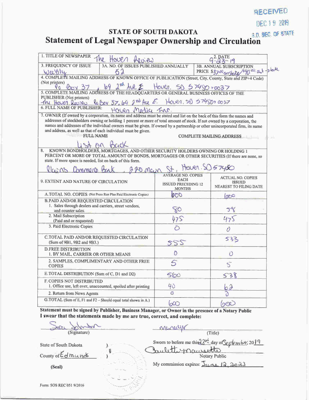 RECEIVED
DEC 19 2019
S.D. SEC. OF STATE
STATE OF SOUTH DAKOTA
Statement of Legal Newspaper Ownership and Circulation
1. TITLE OF NEWSPAPER The Hoven Review
2. DATE
3. FREQUENCY OF ISSUE Weekly
3A. NO. OF ISSUES PUBLISHED ANNUALLY 52
3B. ANNUAL SUBSCRIPTION PRICE
4. COMPLETE MAILING ADDRESS OF KNOWN OFFICE OF PUBLICATION (Street, City, County, State and ZIP+4 Code) (Not printers)
Po Box 37 69 2nd Ave E Hoven SD 57450-0037
5. COMPLETE MAILING ADDRESS OF THE HEADQUARTERS OR GENERAL BUSINESS OFFICES OF THE PUBLISHER (Not printer)
The Hoven Review Po Box 37, 69 2nd Ave E Hoven, SD 57450-0037
6. FULL NAME OF PUBLISHER:
7. OWNER (if owned by a corporation, its name and address must be stated and list on the back of this form the names and addresses of stockholders owning or holding 1 percent or more of total amount of stock. If not owned by a corporation, the names and addresses of the individual owners must be given. If owned by a partnership or other unincorporated firm, its name and address, as well as that of each individual must be given.
FULL NAME COMPLETE MAILING ADDRESS
List on Back
8. KNOWN BONDHOLDERS, MORTGAGEES, AND OTHER SECURITY HOLDERS OWNING OR HOLDING 1 PERCENT OR MORE OF TOTAL AMOUNT OF BONDS, MORTGAGES OR OTHER SECURITIES (If there are none, so state. If more space is needed, list on back of this form.
Plains Commerce Bank 220 Main St Hoven SD 57450
9. EXTENT AND NATURE OF CIRCULATION
AVERAGE NO. COPIES EACH ISSUED PRECEDING 12 MONTHS
ACTUAL NO. COPIES ISSUED NEAREST TO FILING DATE
A. TOTAL NO. COPIES 600 600
B. PAID AND/OR REQUESTED CIRCULATION
1. Sales through dealers and carriers, street vendors, and counter sales. 80
2. Mail Subscription (Paid and or requested) 475
3. Paid Electronic Copies 0 0
C. TOTAL PAID AND/OR REQUESTED CIRCULATION (Sum of 9B1, 9B2 and 9B3.) 555
D. FREE DISTRIBUTION
1. BY MAIL, CARRIER OR OTHER MEANS 0 0
2. SAMPLES, COMPLIMENTARY AND OTHER FREE COPIES 5 5
E. TOTAL DISTRIBUTION (Sum of C, D1 and D2) 560 538
F. COPIES NOT DISTRIBUTED
1. Office use, left over, unaccounted, spoiled after printing 40 62
2. Return from News Agents 0
G. TOTAL (Sum of E, F1 and F2 - Should equal total shown in A.) 600 600
Statement must be signed by Publisher, Business Manager, or Owner in the presence of a Notary Public
I swear that the statements made by me are true, correct, and complete:
(Signature)
manager
(Title)
State of South Dakota )
County of Edmunds )
Sworn to before me this day of September 2019
Notary Public
(Seal)
My commission expires: June 12, 2023